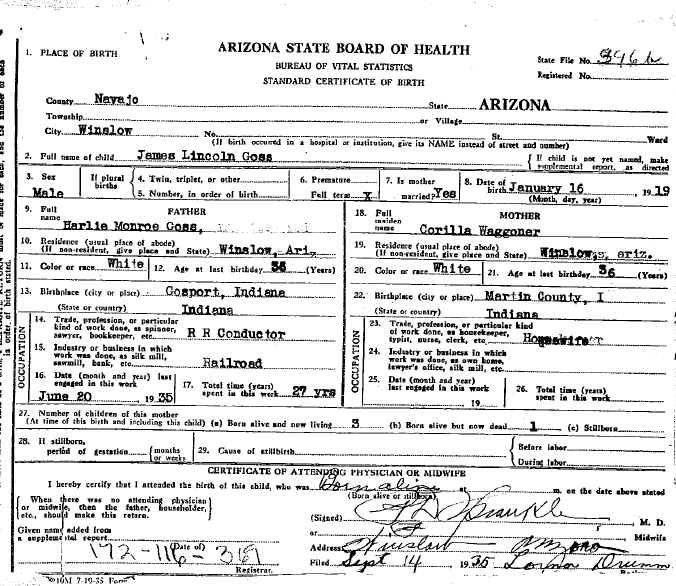 ARIZONA STATE BOARD OF HEALTH
BUREAU OF VITAL STATISTICS
STANDARD CERTIFICATE OF BIRTH
1. PLACE OF BIRTH
State File No.
Registered No.
County Navajo State ARIZONA
Township or Village
City Winslow No. St. Ward
(If birth occurred in a hospital or institution, give its NAME instead of street and number)
2. Full name of child James Lincoln Goss { If child is not yet named, make supplemental report, as directed
3. Sex Male
If plural births { 4. Twin, triplet, or other
5. Number, in order of birth
6. Premature
Full term X
7. Is mother married? Yes
8. Date of birth January 16 1919
(Month, day, year)
9. Full name FATHER
Harlie Monroe Goss,
10. Residence (usual place of abode)
(If non-resident, give place and State) Winslow, Ari,
11. Color or race White 12. Age at last birthday (Years)
13. Birthplace (city or place) Gosport, Indiana
(State or country) Indiana
OCCUPATION
14. Trade, profession, or particular kind of work done, as spinner, sawyer, bookkeeper, etc. R R Conductor
15. Industry or business in which work was done, as silk mill, sawmill, bank, etc. Railroad
16. Date (month and year) last engaged in this work
June 20 1935
17. Total time (years) spent in this work 27 yrs
18. Full maiden name MOTHER
Corilla Waggoner
19. Residence (usual place of abode)
(If non-resident, give place and State) Winslow, ariz.
20. Color or race White 21. Age at last birthday 36 (Years)
22. Birthplace (city or place) Martin County, I
(State or country) Indiana
OCCUPATION
23. Trade, profession, or particular kind of work done, as housekeeper, typist, nurse, clerk, etc.
24. Industry or business in which work was done, as own home, lawyer's office, silk mill, etc.
25. Date (month and year) last engaged in this work
19
26. Total time (years) spent in this work
27. Number of children of this mother
(At time of this birth and including this child) (a) Born alive and now living 3 (b) Born alive but now dead 1 (c) Stillborn
28. If stillborn, period of gestation { months or weeks
29. Cause of stillbirth { Before labor
During labor
CERTIFICATE OF ATTENDING PHYSICIAN OR MIDWIFE
I hereby certify that I attended the birth of this child, who was Born alive at m. on the date above stated
(Born alive or stillborn)
{ When there was no attending physician or midwife, then the father, householder, etc., should make this return. }
(Signed) M. D.
or Midwife
Given name added from a supplemental report
(Date of)
172-116-
Registrar.
Address Winslow
Filed Sept 14 1935
10M 7-19-35 Form